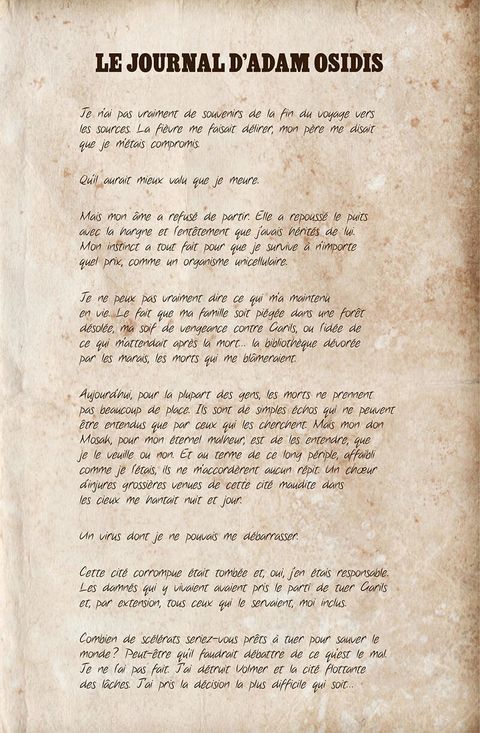 LE JOURNAL D'ADAM OSIDIS
Je n'ai pas vraiment de souvenirs de la fin du voyage vers
les sources. La fièvre me faisait délirer, mon père me disait
que je m'étais compromis.
Qu'il aurait mieux valu que je meure.
Mais mon âme a refusé de partir. Elle a repoussé le puits
avec la hargne et l'entêtement que j'avais hérités de lui.
Mon instinct a tout fait pour que je survive à n'importe
quel prix, comme un organisme unicellulaire.
Je ne peux pas vraiment dire ce qui m'a maintenu
en vie. Le fait que ma famille soit piégée dans une forêt
désolée, ma soif de vengeance contre Garils, ou l'idée de
ce qui m'attendait après la mort... la bibliothèque dévorée
par les marais, les morts qui me blâmeraient.
Aujourd'hui, pour la plupart des gens, les morts ne prennent
pas beaucoup de place. Ils sont de simples échos qui ne peuvent
être entendus que par ceux qui les cherchent. Mais mon don
Mosak, pour mon éternel malheur, est de les entendre, que
je le veuille ou non. Et au terme de ce long périple, affaibli
comme je l'étais, ils ne m'accordèrent aucun répit. Un chœur
d'injures grossières venues de cette cité maudite dans
les cieux me hantait nuit et jour.
Un virus dont je ne pouvais me débarrasser.
Cette cité corrompue était tombée et, oui, j'en étais responsable.
Les damnés qui y vivaient avaient pris le parti de tuer Garils
et, par extension, tous ceux qui le servaient, moi inclus.
Combien de scélérats seriez-vous prêts à tuer pour sauver le
monde ? Peut-être qu'il faudrait débattre de ce qu'est le mal.
Je ne l'ai pas fait. J'ai détruit Volmer et la cité flottante
des lâches. J'ai pris la décision la plus difficile qui soit...